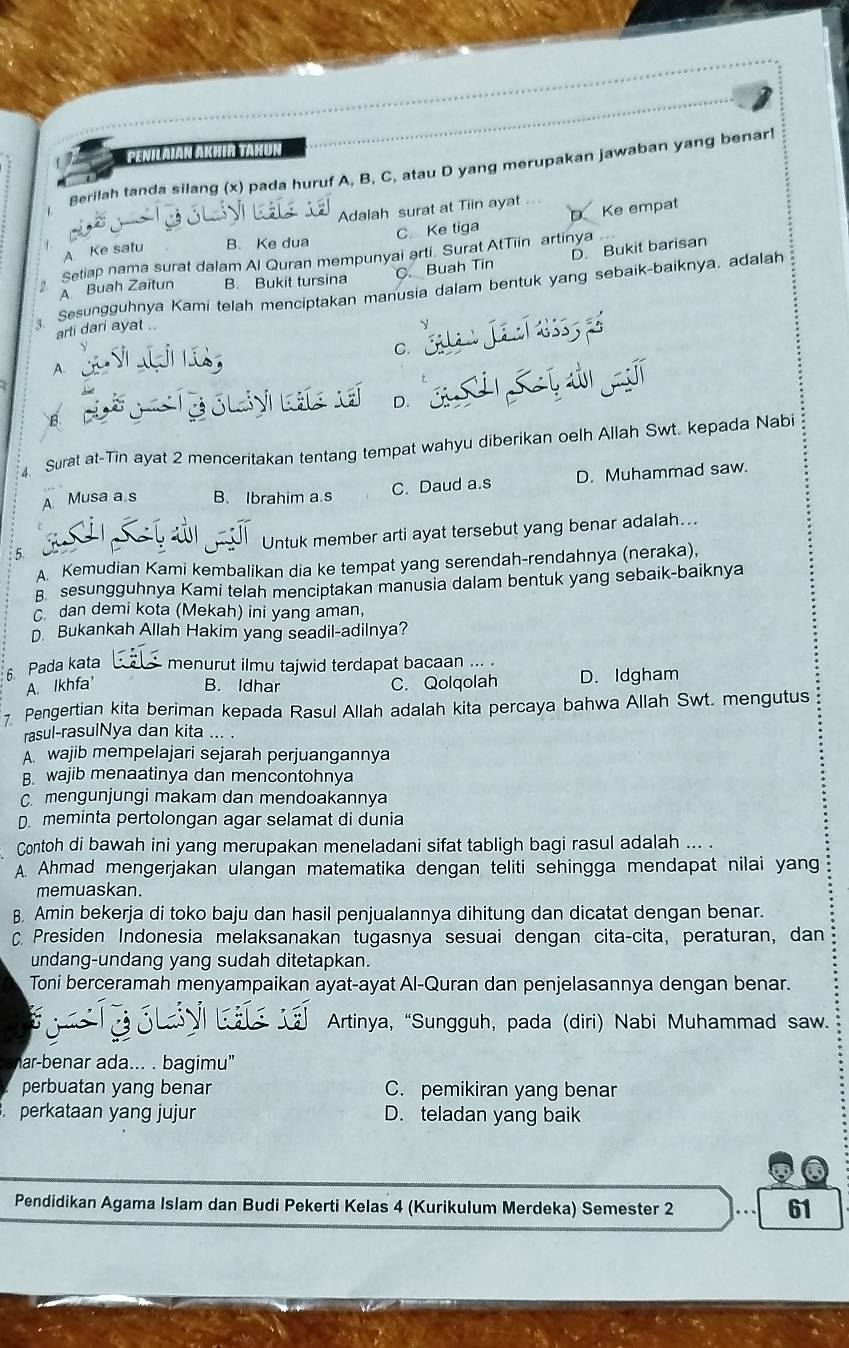 PENILAIAN AKHIR TAHUN
I. Berilah tanda silang (x) pada huruf A, B, C, atau D yang merupakan jawaban yang benar!
1. لَقَدْ خَلَقْنَا الْإِنْسَانَ فِيْ أَحْسَنِ تَقْوِيْمٍ Adalah surat at Tiin ayat ...
A Ke satu B. Ke dua C. Ke tiga D. Ke empat
2. Setiap nama surat dalam Al Quran mempunyai arti. Surat AtTiin artinya ...
A. Buah Zaitun B. Bukit tursina C. Buah Tin D. Bukit barisan
3. Sesungguhnya Kami telah menciptakan manusia dalam bentuk yang sebaik-baiknya. adalah
arti dari ayat ..
A. وَهٰذَا الْبَلَدِ الْأَمِيْنِ C. ثُمَّ رَدَدْنٰهُ أَسْفَلَ سَافِلِيْنَ
B. لَقَدْ خَلَقْنَا الْإِنْسَانَ فِيْ أَحْسَنِ تَقْوِيْمٍ D. أَلَيْسَ اللّٰهُ بِأَحْكَمِ الْحٰكِمِيْنَ
4. Surat at-Tin ayat 2 menceritakan tentang tempat wahyu diberikan oelh Allah Swt. kepada Nabi
A. Musa a.s B. Ibrahim a.s C. Daud a.s D. Muhammad saw.
5. أَلَيْسَ اللّٰهُ بِأَحْكَمِ الْحٰكِمِيْنَ Untuk member arti ayat tersebut yang benar adalah...
A. Kemudian Kami kembalikan dia ke tempat yang serendah-rendahnya (neraka),
B. sesungguhnya Kami telah menciptakan manusia dalam bentuk yang sebaik-baiknya
C. dan demi kota (Mekah) ini yang aman,
D. Bukankah Allah Hakim yang seadil-adilnya?
6. Pada kata خَلَقْنَا menurut ilmu tajwid terdapat bacaan ... .
A. Ikhfa' B. Idhar C. Qolqolah D. Idgham
7. Pengertian kita beriman kepada Rasul Allah adalah kita percaya bahwa Allah Swt. mengutus
rasul-rasulNya dan kita ... .
A. wajib mempelajari sejarah perjuangannya
B. wajib menaatinya dan mencontohnya
C. mengunjungi makam dan mendoakannya
D. meminta pertolongan agar selamat di dunia
Contoh di bawah ini yang merupakan meneladani sifat tabligh bagi rasul adalah ... .
A. Ahmad mengerjakan ulangan matematika dengan teliti sehingga mendapat nilai yang
memuaskan.
B. Amin bekerja di toko baju dan hasil penjualannya dihitung dan dicatat dengan benar.
C. Presiden Indonesia melaksanakan tugasnya sesuai dengan cita-cita, peraturan, dan
undang-undang yang sudah ditetapkan.
Toni berceramah menyampaikan ayat-ayat Al-Quran dan penjelasannya dengan benar.
لَقَدْ خَلَقْنَا الْإِنْسَانَ فِيْ أَحْسَنِ Artinya, “Sungguh, pada (diri) Nabi Muhammad saw.
ar-benar ada... . bagimu”
perbuatan yang benar C. pemikiran yang benar
perkataan yang jujur D. teladan yang baik
Pendidikan Agama Islam dan Budi Pekerti Kelas 4 (Kurikulum Merdeka) Semester 2 ... 61